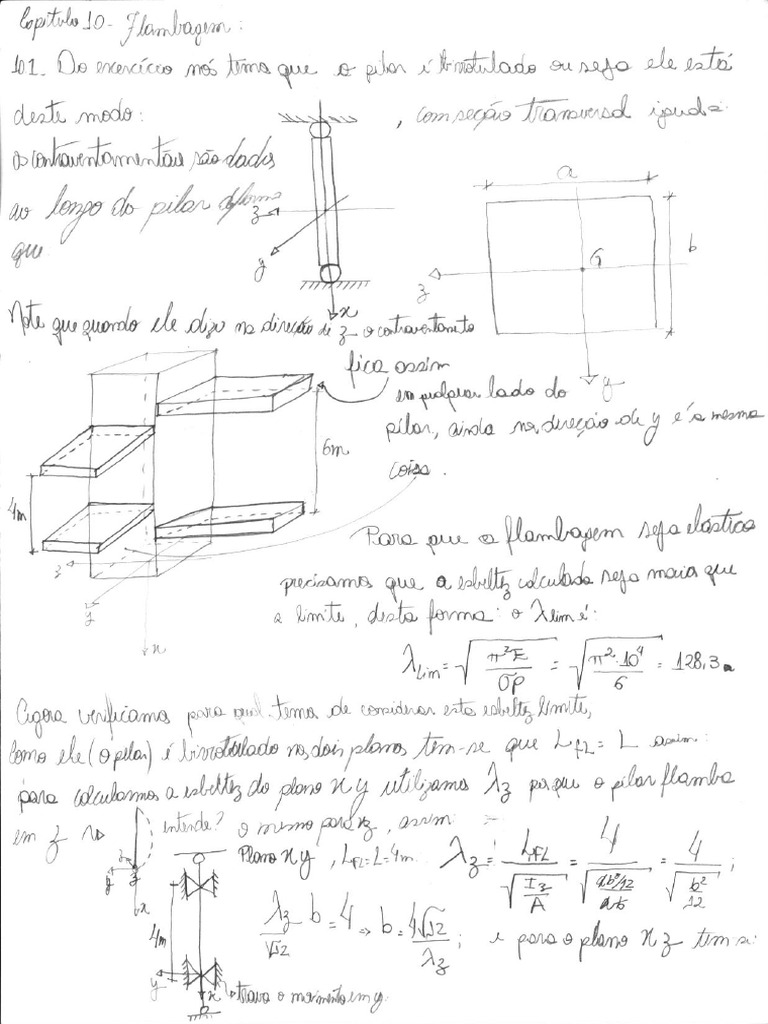 Capitulo 10 - Flambagem:
10.1. Do exercício nós temo que o pilar é birrotulado ou seja ele está
deste modo:
, com seção transversal igual a:
os contraventamentos são dados
ao longo do pilar de forma
que
z
y
x
a
b
G
z
y
Note que quando ele diz na direção de z o contraventamento
fica assim
em qualquer lado do
pilar, ainda na direção de y é a mesma
coisa.
6m
4m
z
y
x
Para que a flambagem seja elástica
precisamos que a esbeltez calculada seja maior que
a limite, desta forma: o λlim é:
λLim = √(π²E/σp) = √(π²·10⁴/6) = 128,3
Agora verificamos para qual temos de considerar esta esbeltez limite,
como ele (o pilar) é birrotulado nos dois planos tem-se que LfL = L assim:
para calcularmos a esbeltez do plano xy utilizamos λz porque o pilar flamba
em z
entende? o mesmo para xz, assim:
z
y
x
Plano xy, LfL=L=4m. λz = LFL/√(Iz/A) = 4/√((ab³/12)/(ab)) = 4/√(b²/12);
4m
λz/√12 b = 4 → b = 4√12/λz; e para o plano xz tem-se:
y
x
trava o movimento em y.